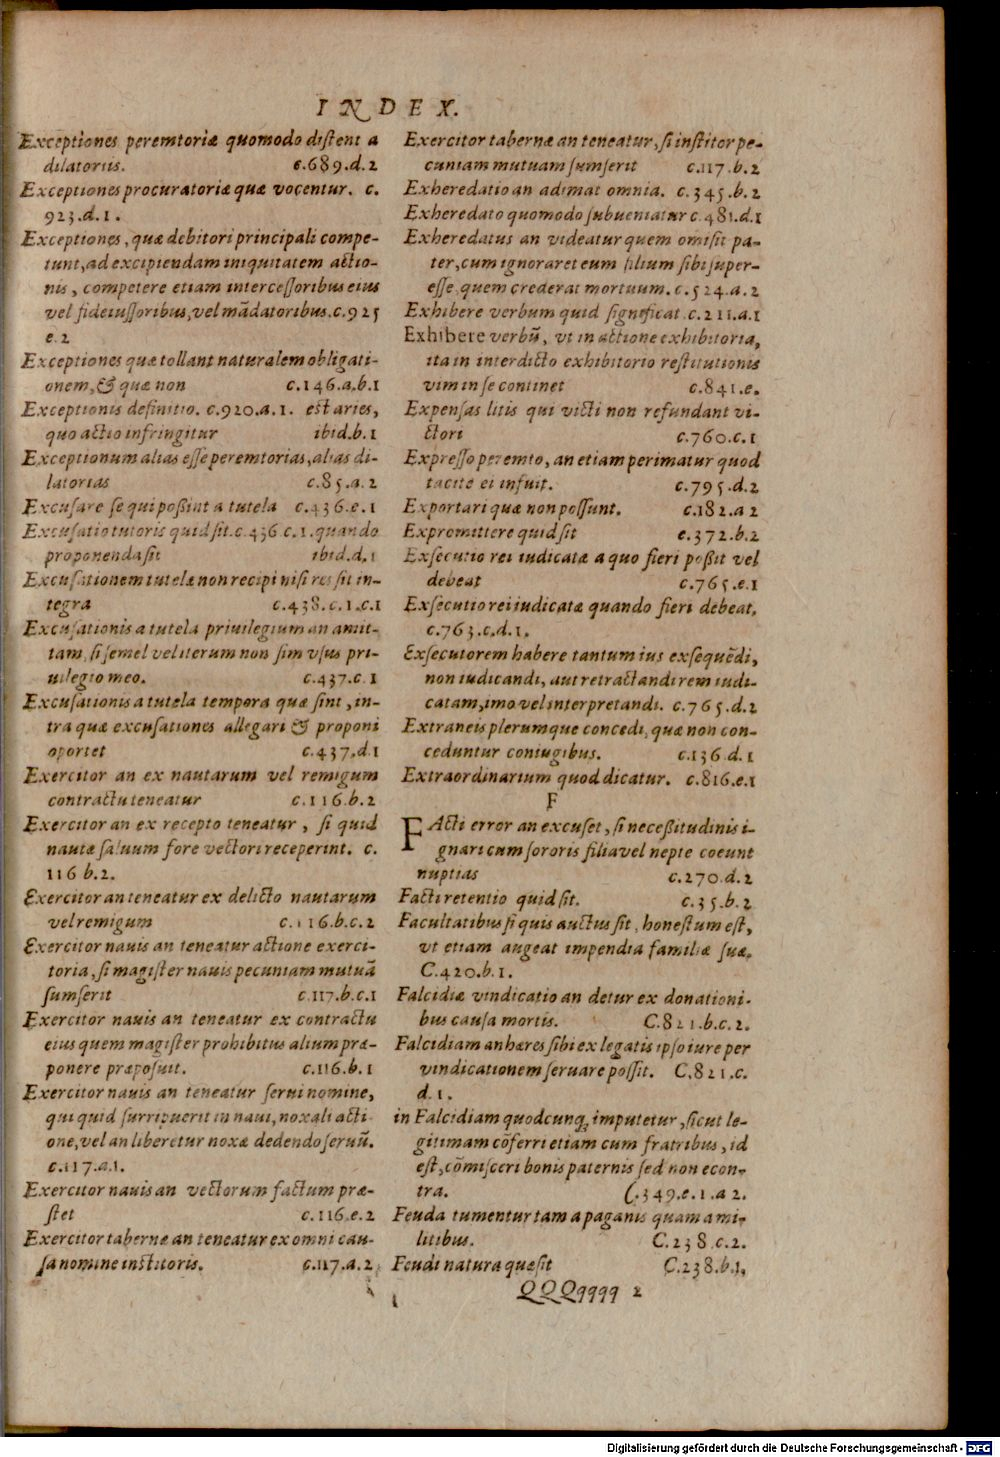 INDEX.
Exceptiones peremtoriæ quomodo distent a
dilatoriis. c.689.d.2
Exceptiones procuratoriæ quæ vocentur. c.
923.d.1.
Exceptiones, quæ debitori principali compe-
tunt, ad excipiendam iniquitatem actio-
nis, competere etiam intercessoribus eius
vel fideiussoribus, vel mãdatoribus.c.925
e.2
Exceptiones quæ tollant naturalem obligati-
onem, & quæ non c.146.a.b.1
Exceptionis definitio. c.920.a.1. est aries,
quo actio infringitur ibid.b.1
Exceptionum alias esse peremtorias, alias di-
latorias c.85.a.2
Excusare se qui poßint a tutela c.436.e.1
Excusatio tutoris quid sit.c.436 c.1.quando
proponenda sit ibid.d.1
Excusationem tutelæ non recipi nisi res sit in-
tegra c.438.c.1.c.1
Excusationis a tutela priuilegium an amit-
tam, si semel vel iterum non sim vsus pri-
uilegio meo. c.437.c.1
Excusationis a tutela tempora quæ sint, in-
tra quæ excusationes allegari & proponi
oportet c.437.d.1
Exercitor an ex nautarum vel remigum
contractu teneatur c.116.b.2
Exercitor an ex recepto teneatur, si quid
nautæ saluum fore vectori receperint. c.
116 b.2.
Exercitor an teneatur ex delicto nautarum
vel remigum c.116.b.c.2
Exercitor nauis an teneatur actione exerci-
toria, si magister nauis pecuniam mutuã
sumserit c.117.b.c.1
Exercitor nauis an teneatur ex contractu
eius quem magister prohibitus alium præ-
ponere præposuit. c.116.b.1
Exercitor nauis an teneatur serui nomine,
qui quid surripuerit in naui, noxali acti-
one, vel an liberetur noxæ dedendo seruũ.
c.117.a.1.
Exercitor nauis an vectorum factum præ-
stet c.116.e.2
Exercitor tabernæ an teneatur ex omni cau-
sa nomine institoris. c.117.a.2
Exercitor tabernæ an teneatur, si institor pe-
cuniam mutuam sumserit c.117.b.2
Exheredatio an adimat omnia. c.345.b.2
Exheredato quomodo subueniatur c.481.d.1
Exheredatus an videatur quem omisit pa-
ter, cum ignoraret eum filium sibi super-
esse, quem crederat mortuum. c.524.a.2
Exhibere verbum quid significat.c.211.a.1
Exhibere verbũ, vt in actione exhibitoria,
ita in interdicto exhibitorio restitutionis
vim in se continet c.841.e.
Expensas litis qui victi non refundant vi-
ctori c.760.c.1
Expresso peremto, an etiam perimatur quod
tacite ei infuit. c.795.d.2
Exportari quæ non possunt. c.182.a 2
Expromittere quid sit c.372.b.2
Exsecutio rei iudicatæ a quo fieri poßit vel
debeat c.765.e.1
Exsecutio rei iudicatæ quando fieri debeat.
c.763.c.d.1.
Exsecutorem habere tantum ius exsequẽdi,
non iudicandi, aut retractandi rem iudi-
catam, imo vel interpretandi. c.765.d.2
Extraneis plerumque concedi, quæ non con-
ceduntur coniugibus. c.136.d.1
Extraordinarium quod dicatur. c.816.e.1
F
FActi error an excuset, si neceßitudinis i-
gnari cum sororis filia vel nepte coeunt
nuptias c.270.d.2
Facti retentio quid sit. c.35.b.2
Facultatibus si quis auctus sit, honestum est,
vt etiam augeat impendia familiæ suæ.
C.420.b.1.
Falcidiæ vindicatio an detur ex donationi-
bus causa mortis. C.821.b.c.2.
Falcidiam an hæres sibi ex legatis ipso iure per
vindicationem seruare possit. C.821.c.
d.1.
in Falcidiam quodcunq; imputetur, sicut le-
gitimam cõferri etiam cum fratribus, id
est, cõmisceri bonis paternis sed non econ-
tra. C.349.e.1.a 2.
Feuda tumentur tam a paganis quam a mi-
litibus. C.238.c.2.
Feudi natura quæ sit C.238.b.1.
QQQqqqq 2
Digitalisierung gefördert durch die Deutsche Forschungsgemeinschaft - DFG